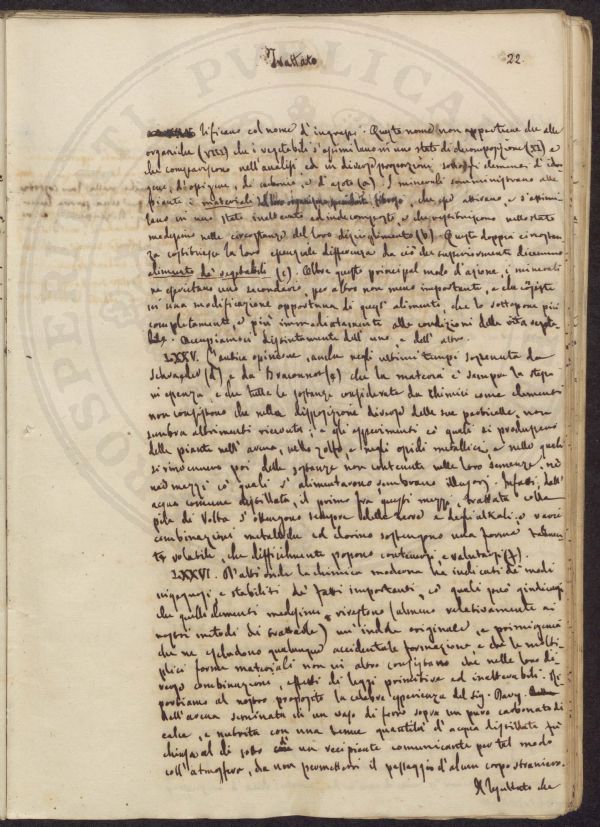 Trattato 22
lificano col nome d'ingrassi. Questo nome non appartiene che alle
organiche (VIII) che i vegetabili s'assimilano in uno stato di decomposizione (XI) e
che compariscono nell'analisi ed in diverse proporzioni sotto gli elementi d'idro
gene, d'ossigene, di carbonio, e d'azoto (a). I minerali somministrano alle
piante i materiali che esse attirano, e s'assimi
lano in uno stato inalterato ed indecomposto, e che restituiscono nello stato
medesimo nelle circostanze del loro discioglimento (b). Questa doppia circostan
za costituisce la loro essenziale differenza da ciò che superiormente dicemmo
alimento de' vegetabili (c). Oltre questo principal modo d'azione, i minerali
ne esercitano uno secondario, per altro non meno importante, e che consiste
in una modificazione opportuna di quegli alimenti, che lo sottopone più
completamente, e più immediatamente alle condizioni della vita vegeta
bile. Occupiamoci distintamente dell'uno, e dell'altro.
LXXV. L'antica opinione, anche negli ultimi tempi sostenuta da
Schrader (d) e da Braconnot (e) che la materia è sempre la stessa
in essenza, e che tutte le sostanze considerate da Chimici come elementi
non consistono che nella disposizione diversa delle sue particelle, non
sembra altrimenti ricevuta; e gli esperimenti co' quali si produssero
delle piante nell'arena, nello zolfo, e negli ossidi metallici, e nelle quali
si rinvennero poi delle sostanze non contenute nelle loro semenze, nè
nei mezzi co' quali s'alimentarono sembrano illusorj. Infatti dall'
acqua comune distillata, il primo fra questi mezzi, trattata colla
pila di Volta s'ottengono sempre delle terre e degli alkali, e varie
combinazioni metalliche ed il cloro sostengono una forma talmen
te volatile, che difficilmente possono contenersi, e valutarsi (f).
LXXVI. D'altronde la chimica moderna ha indicati de' modi
ingegnosi, e stabiliti de' fatti importanti, co' quali può giudicarsi
che quelli elementi medesimi rivestono (almeno relativamente ai
nostri metodi di trattarle) un'indole originale, e primigenia
che ne escludono qualunque accidentale formazione, e che le molti
plici forme materiali non in altro consistono che nelle loro di
verse combinazioni, effetti di leggi primitive ed inalterabili. Ri
portiamo al nostro proposito la celebre esperienza del Sig. Davy.
dell'avena seminata in un vaso di ferro sopra un puro carbonato di
calce, e nutrita con una tenue quantità d'acqua distillata fu
chiusa al di sotto di un recipiente comunicante per tal modo
coll'atmosfera, da non permettersi il passaggio d'alcun corpo straniero.
Il resultato che